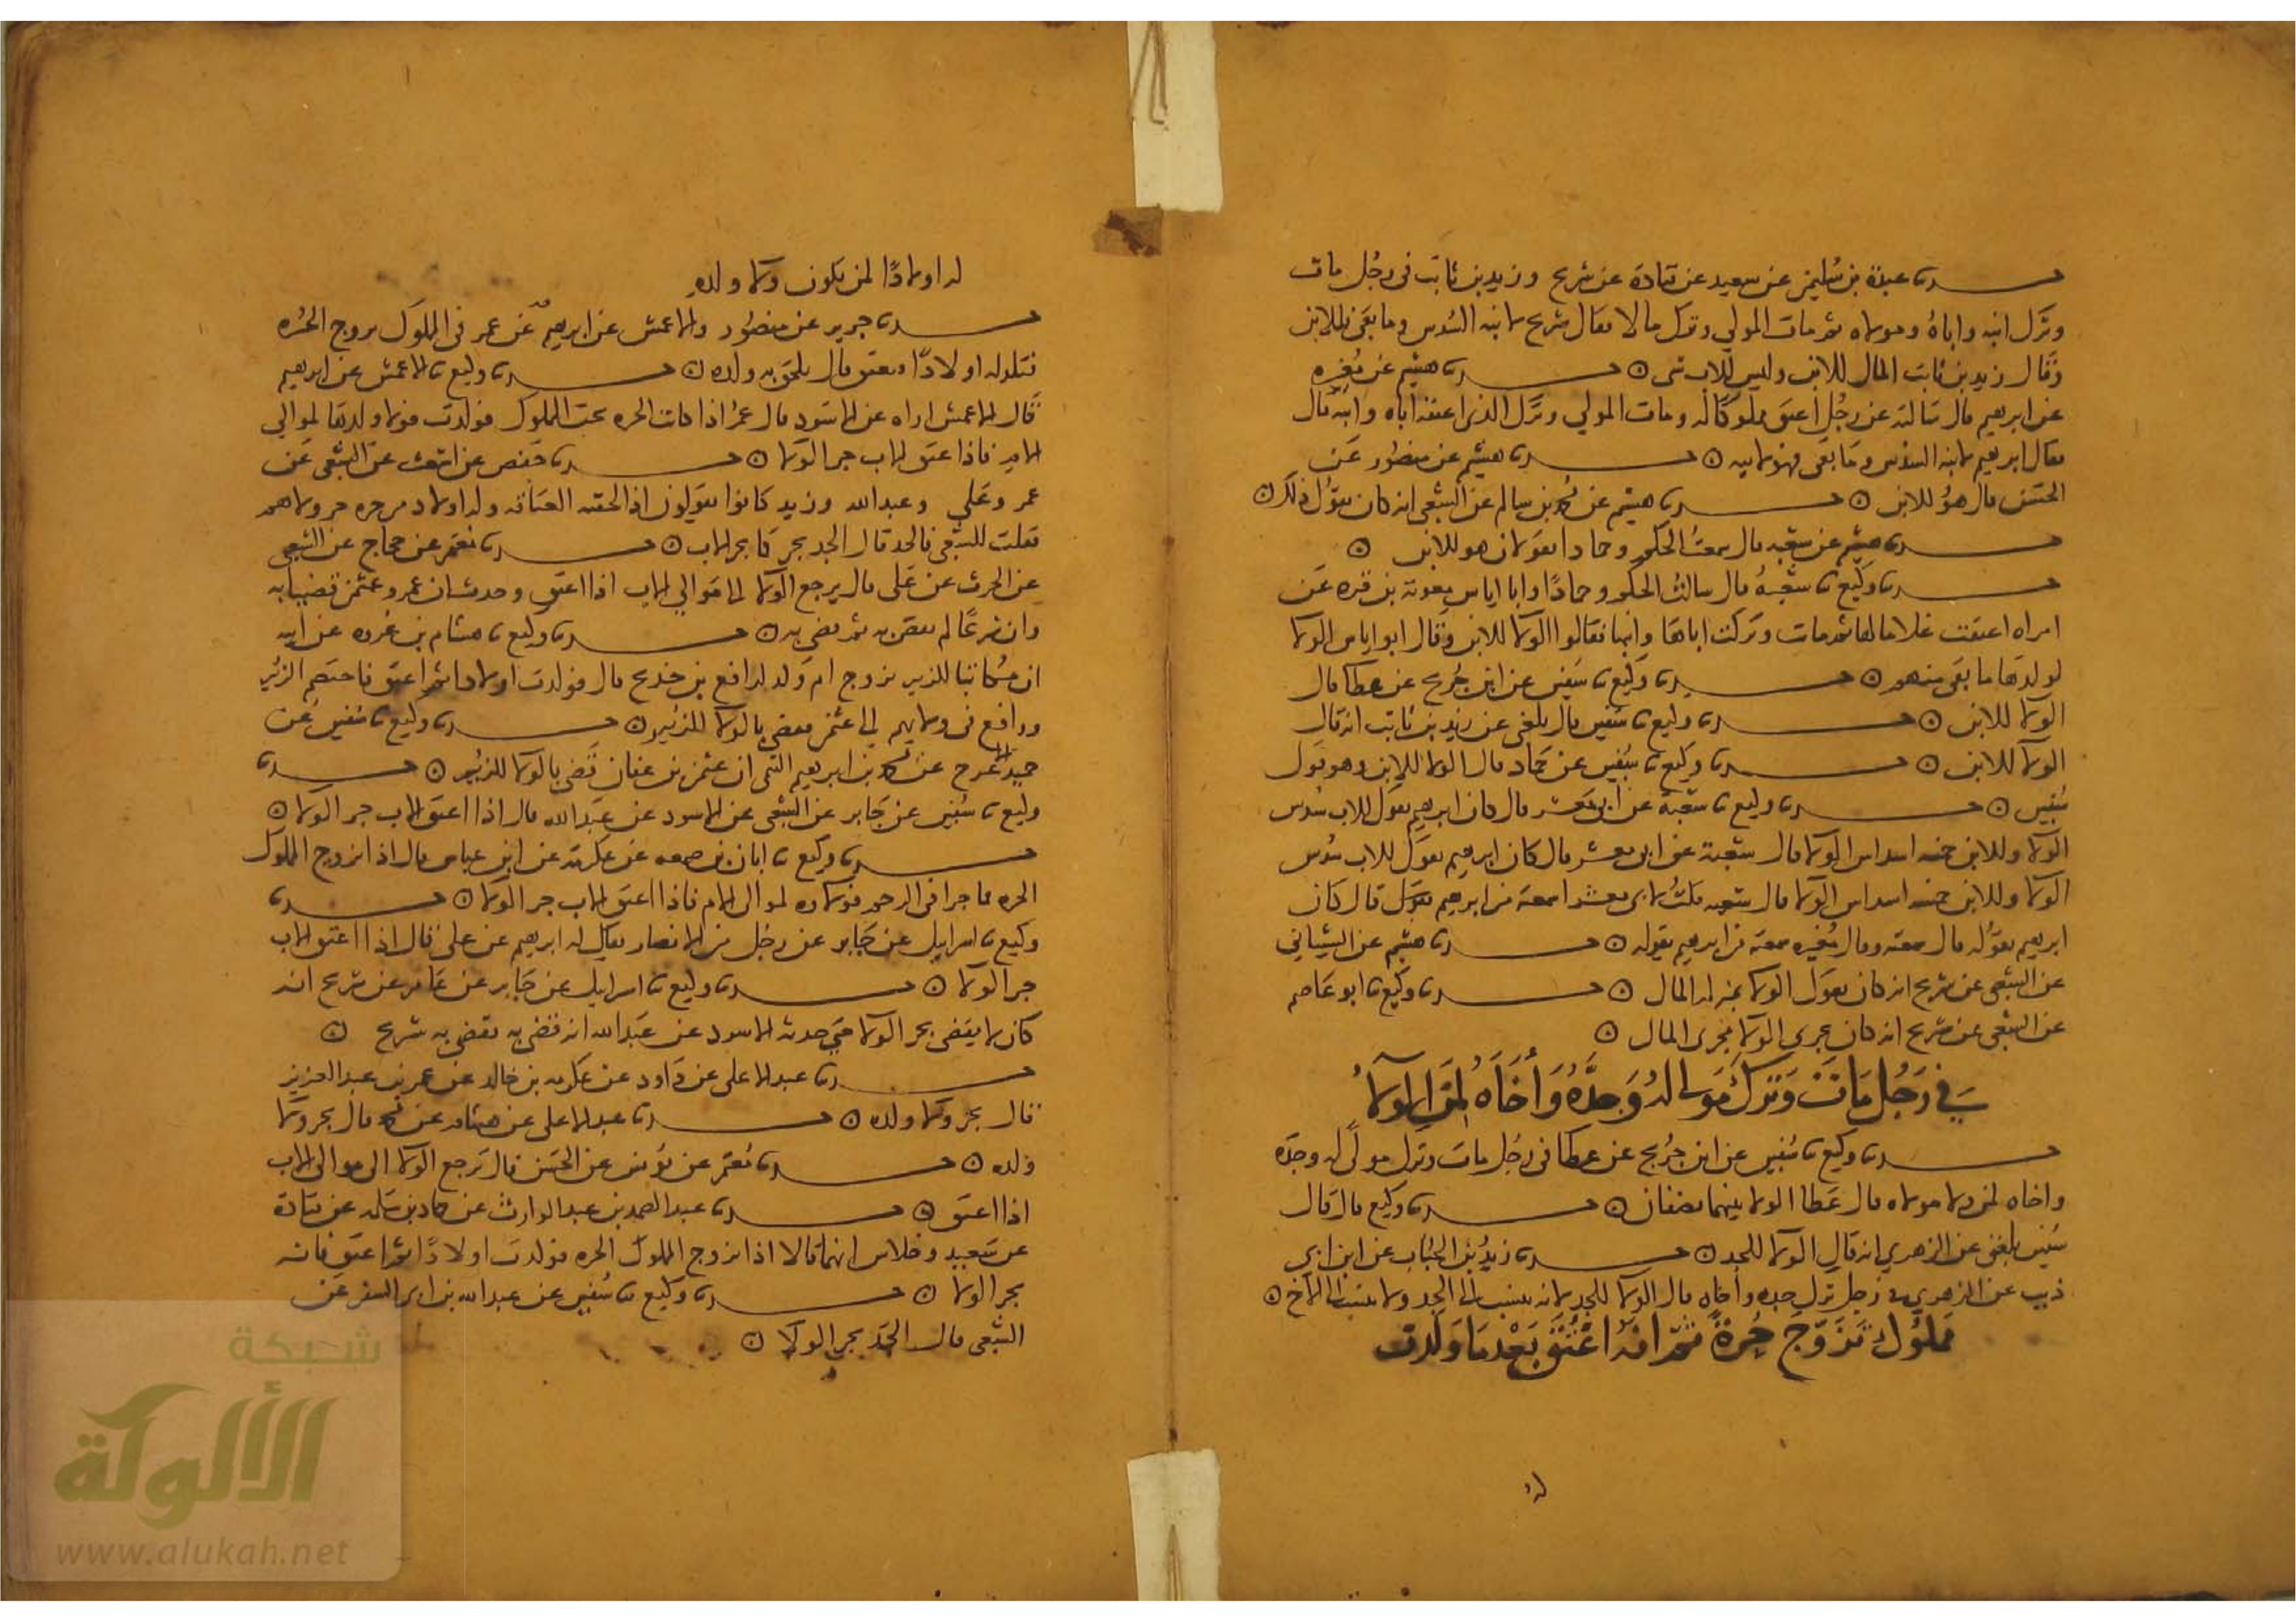 حدثنا عبدة بن سليمن عن سعيد عن قتادة عن شريح وزيد بن ثابت في رجل مات
وترك ابنه واباه ومولاه ثم مات المولي وترك مالا فقال شريح لابيه السدس وما بقي فللابن
وقال زيد بن ثابت المال للابن وليس للاب شي ه حدثنا هشيم عن مغيره
عن ابرهيم قال سالته عن رجل اعتق مملوكا له ومات المولي وترك الذي اعتقه اباه وابنه قال
فقال ابرهيم لابيه السدس وما بقي فهو لابنه ه حدثنا هشيم عن منصور عن
الحسن قال هو للابن ه حدثنا هشيم عن محمد بن سالم عن الشعبي انه كان يقول ذلك ه
حدثنا هشيم عن شعبه قال سمعت الحكم وحمادا يقولان هو للابن ه
حدثنا وكيع نا شعبة قال سالت الحكم وحمادا وابا اياس معوية بن قره عن
امراه اعتقت غلاما لها ثم مات وتركت اباها وابنها فقالوا الولا للابن وقال ابو اياس الولا
لولدها ما بقي منهم ه حدثنا وكيع نا سفين عن ابن جريج عن عطا قال
الولا للابن ه حدثنا وكيع نا سفين قال بلغني عن زيد بن ثابت انه قال
الولا للابن ه حدثنا وكيع نا سفين عن حماد قال الولا للابن وهو قول
سفين ه حدثنا وكيع نا شعبة عن ابي معشر قال كان ابرهيم يقول للاب سدس
الولا وللابن خمسه اسداس الولا قال شعبة عن ابي معشر قال كان ابرهيم يقول للاب سدس
الولا وللابن خمسه اسداس الولا قال شعبه قلت لابي معشر اسمعته من ابرهيم يقول قال كان
ابرهيم يقوله قال سمعته وقال مغيره سمعته من ابرهيم يقوله ه حدثنا هشيم عن الشيباني
عن الشعبي عن شريح انه كان يقول الولا بمنزله المال ه حدثنا وكيع نا ابو عاصم
عن الشعبي عن شريح انه كان يجري الولا مجري المال ه
في رجل مات وترك مولى له وجده وأخاه لمن الولاء
حدثنا وكيع نا سفين عن ابن جريج عن عطا في رجل مات وترك مولى له وجده
واخاه لمن ولا مولاه قال عطا الولا بينهما نصفان ه حدثنا وكيع قال قال
سفين بلغني عن الزهري انه قال الولا للجد ه حدثنا زيد بن الحباب عن ابن ابي
ذيب عن الزهري في رجل ترك جده وأخاه قال الولا للجد لانه ينسب الى الجد ولا ينسب الى الاخ ه
مملوك تزوج حرة ثم انه اعتق بعدما ولدت
له
له اولادا لمن يكون ولا ولده
حدثنا جرير عن منصور والاعمش عن ابرهيم عن عمر في المملوك يزوج الحره
فتلد له اولادا فيعتق قال يلحق به ولده ه حدثنا وكيع نا الاعمش عن ابرهيم
قال الاعمش اراه عن الاسود قال عمر اذا كانت الحره تحت المملوك فولدت فولا ولدها لموالي
الام فاذا عتق الاب جر الولا ه حدثنا حفص عن اشعث عن الشعبي عن
عمر وعلي وعبد الله وزيد كانوا يقولون اذا لحقته العتاقه وله اولاد من حره جر ولاهم
فقلت للشعبي فالجد قال الجد يجر كما يجر الاب ه حدثنا معتمر عن حجاج عن الشعبي
عن الحرث عن علي قال يرجع الولا الى موالي الاب اذا اعتق وحدث ان عمر وعثمن قضيا به
وان شريحا لم يقض به ثم قضي به ه حدثنا وكيع نا هشام بن عروه عن ابيه
ان مكاتبا للزبير تزوج ام ولد لرافع بن خديج قال فولدت اولادا ثم اعتق فاختصم الزبير
ورافع في ولايهم الي عثمن فقضي بالولا للزبير ه حدثنا وكيع نا سفين عن
حميد الاعرج عن محمد بن ابرهيم التيمي ان عثمن بن عفان قضى بالولا للزبير ه حدثنا
وكيع نا سفين عن جابر عن الشعبي عن الاسود عن عبد الله قال اذا اعتق الاب جر الولا ه
حدثنا وكيع نا ابان بن صمعه عن عكرمة عن ابن عباس قال اذا تزوج المملوك
الحره فما جرا في الرحم فولاوه لموالي الام فاذا اعتق الاب جر الولا ه حدثنا
وكيع نا اسرايل عن جابر عن رجل من الانصار يقال له ابرهيم عن علي قال اذا اعتق الاب
جر الولا ه حدثنا وكيع نا اسرايل عن جابر عن عامر عن شريح انه
كان لا يقضي بجر الولا حتي حدثه الاسود عن عبد الله انه قضى به فقضى به شريح ه
حدثنا عبد الاعلى عن داود عن عكرمه بن خالد عن عمر بن عبد العزيز
قال يجر ولا ولده ه حدثنا عبد الاعلى عن هشام عن محمد قال يجر ولا
ولده ه حدثنا معتمر عن يونس عن الحسن قال ترجع الولا الى موالى الاب
اذا اعتق ه حدثنا عبد الصمد بن عبد الوارث عن حماد بن سلمه عن قتادة
عن سعيد وخلاس انهما قالا اذا تزوج المملوك الحره فولدت اولادا ثم اعتق فانه
يجر الولا ه حدثنا وكيع نا سفين عن عبد الله بن ابي السفر عن
الشعبي قال الجد يجر الولا ه
شبكة
الألوكة
www.alukah.net